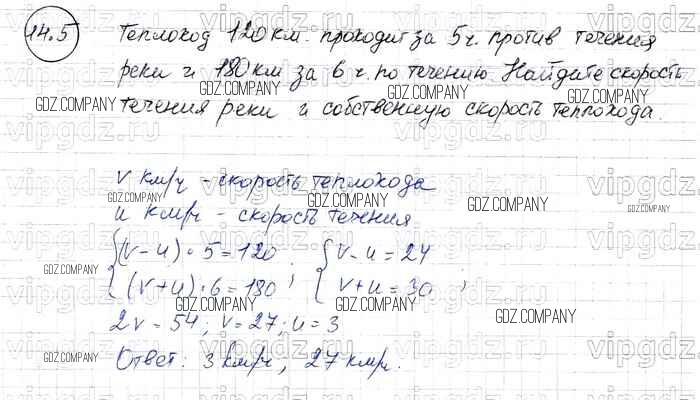 14.5 Теплоход 120 км. проходит за 5 ч. против течения
реки и 180 км за 6 ч. по течению. Найдите скорость
течения реки и собственную скорость теплохода.
v км/ч - скорость теплохода
u км/ч - скорость течения
{(v-u)·5=120 {v-u=24
{(v+u)·6=180 ; {v+u=30 ;
2v=54; v=27; u=3
Ответ: 3 км/ч, 27 км/ч.
GDZ.COMPANY
vipgdz.ru